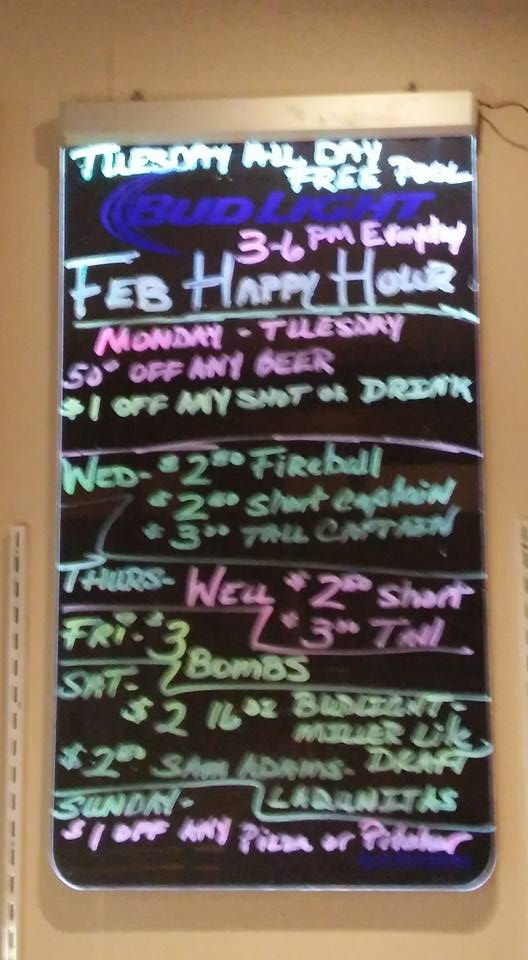 TUESDAY ALL DAY
FREE POOL
BUD LIGHT
3-6 PM Everyday
FEB HAPPY HOUR
MONDAY - TUESDAY
50¢ OFF ANY BEER
$1 OFF ANY SHOT OR DRINK
WED- $2.50 Fireball
$2.50 short Captain
$3.00 TALL CAPTAIN
THURS- WELL $2.50 short
$3.00 Tall
FRI- $3
BOMBS
SAT-
$2 16oz BUDLIGHT-
MILLER Lite
DRAFT
$2.50 SAM ADAMS-
LAGUNITAS
SUNDAY-
$1 OFF ANY Pizza or Pitcher